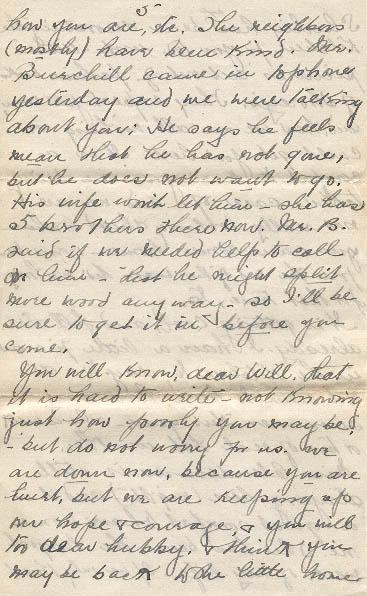 5
how you are, etc. The neighbors
(mostly) have been kind. Mr.
Burchill came in to phone
yesterday and we were talking
about you; He says he feels
mean that he has not gone,
but he does not want to go.
His wife won't let him - she has
5 brothers there now. Mr. B.
said if we needed help to call
on him - that he might split
more wood any way - so I'll be
sure to get it in before you
come.
You will know, dear Will, that
it is hard to write - not knowing
just how poorly you may be,
- but do not worry for us. We
are down now, because you are
hurt, but we are keeping up
our hope & courage, & you will
too dear hubby, & think you
may be back to the little home